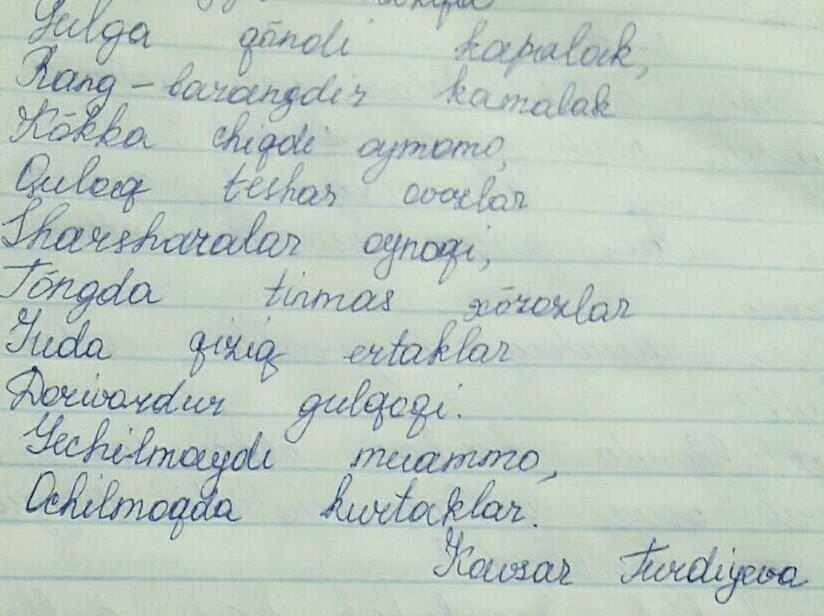 Gulga qōndi kapalak,
Rang-barangdir kamalak
Kōkka chiqdi oymomo,
Quloq teshar ovozlar
Sharsharalar oynoqi,
Tōngda tinmas xōrozlar
Juda qiziq ertaklar
Dorivordur gulqoqi.
Yechilmaydi muammo,
Ochilmoqda kurtaklar.
Kavsar Turdiyeva